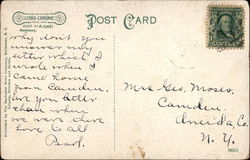 POST CARD
Why don't you
answer my
letter which I
wrote when I
came home
from Camden.
are you better
than when
we were there
love to all
Pearl.
Mrs. Geo. Moses.
Camden.
Oneida Co.
N. Y.